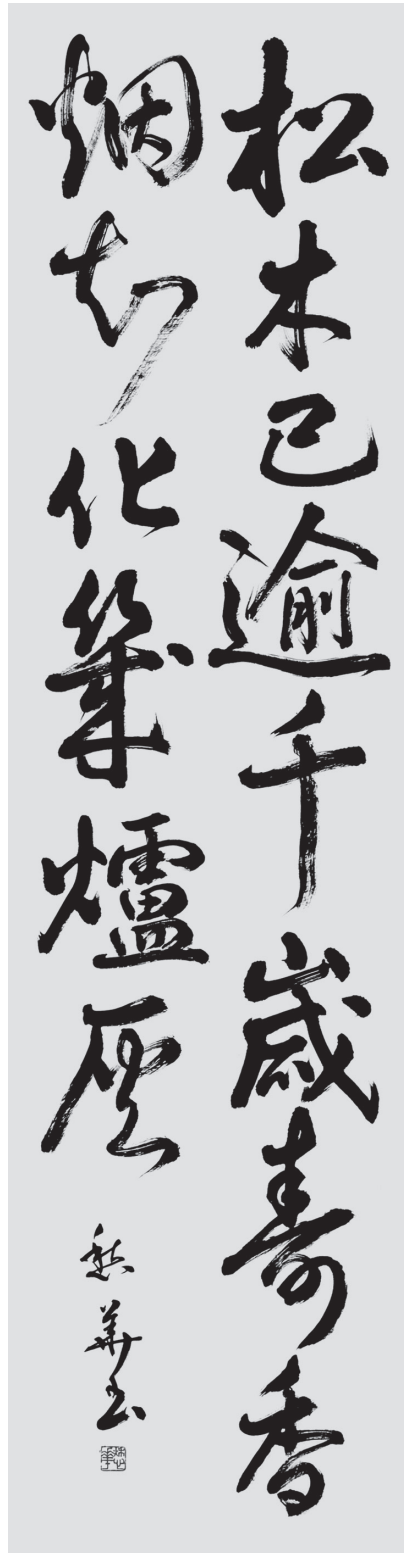 松木已逾千歳寿香
烟知化幾爐灰
華書